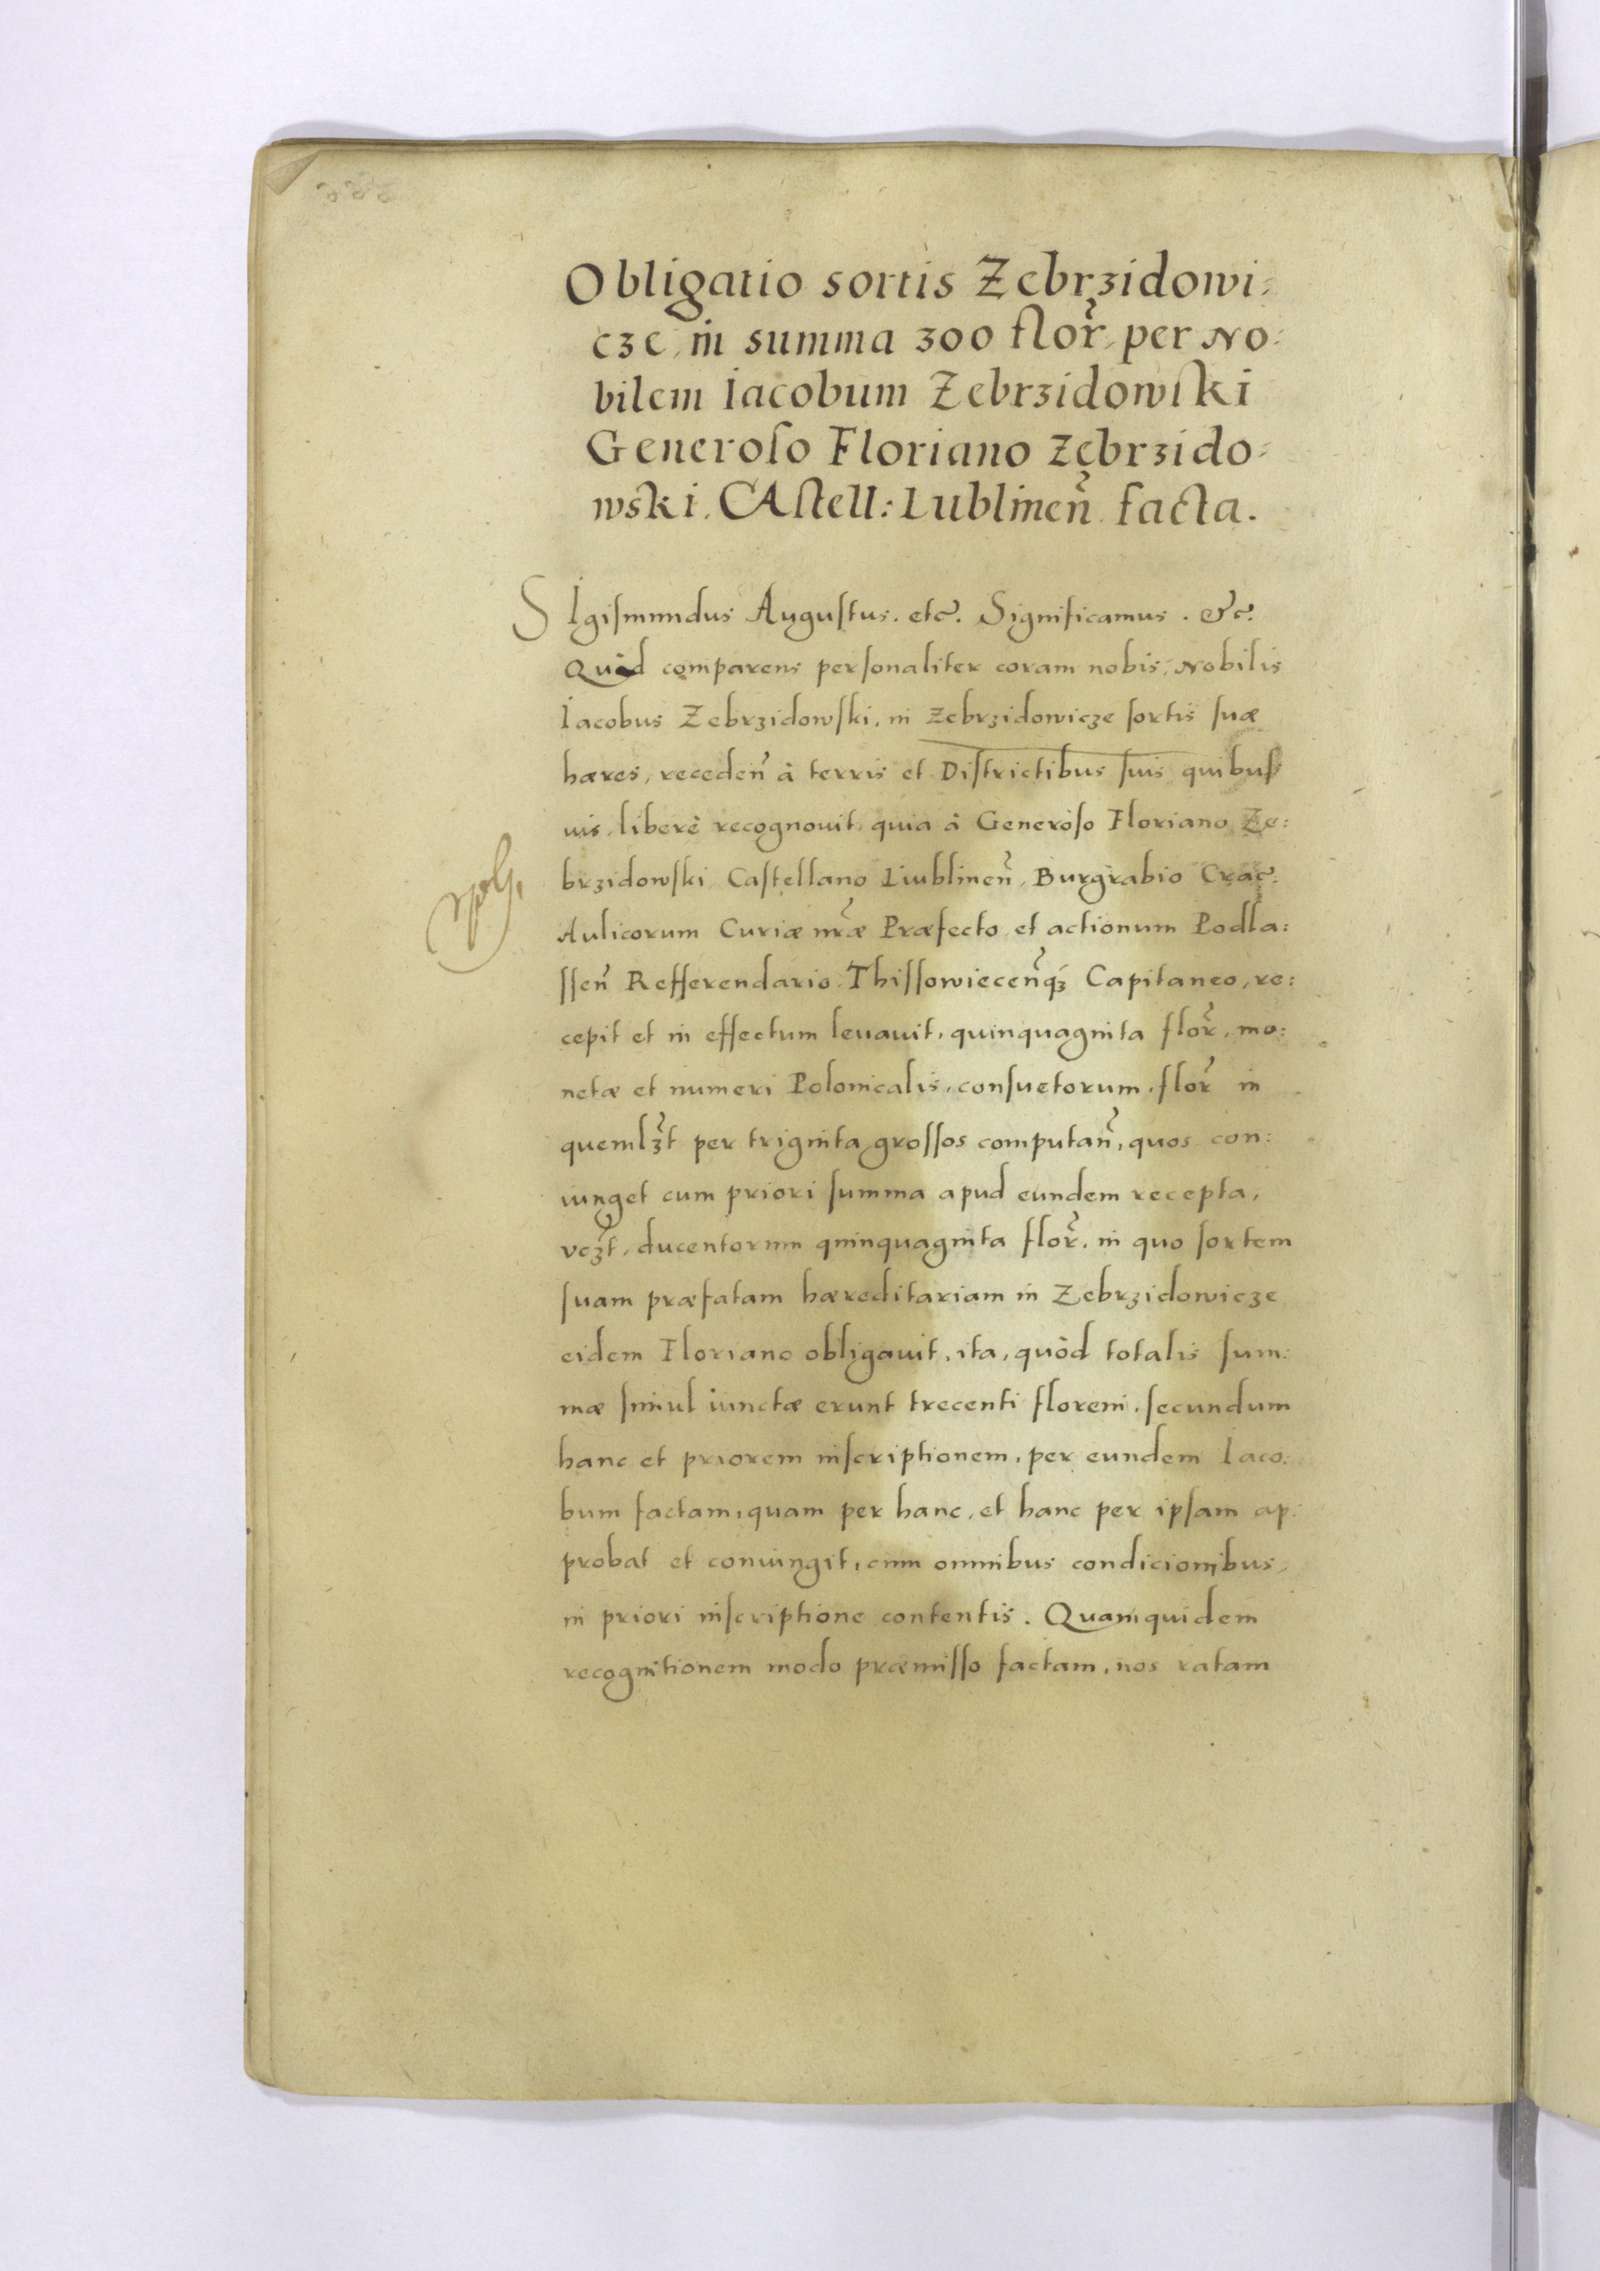 Obligatio sortis Zebrzidowi:
cze, in summa 300 flor̃, per No:
bilem Iacobum Zebrzidowski
Generoso Floriano Zebrzido:
wski, CAstell: Lublineñ facta.
SIgismundus Augustus. etc̃. Significamus. &c̃.
Quòd comparens personaliter coram nobis, Nobilis
Iacobus Zebrzidowski, in Zebrzidowicze sortis suæ
hæres, recedeñ à terris et Districtibus suis quibus
uis, liberè recognouit, quia à Generòso Floriano Ze:
brzidowski Castellano Liublineñ, Burgrabio Crac̃:
Aulicorum Curiæ nr̃æ Præfecto, et actionum Podla:
sseñ Refferendario Thissowieceñq́ꝫ Capitaneo, re:
cepit et in effectum leuauit, quinquaginta flor̃, mo:
netæ et numeri Polonicalis, consuetorum, flor̃ in
quemlꝫ̃t per triginta grossos computañ, quos con:
iunget cum priori summa apud eundem recepta,
vcꝫ̃t, ducentorum quinquaginta flor̃, in quo sortem
suam præfatam hæreditariam in Zebrzidowicze
eidem Floriano obligauit, ita, quòd totalis sum:
mæ simul iunctæ erunt trecenti floreni, secundum
hanc et priorem inscriptionem, per eundem Iaco:
bum factam, quam per hanc, et hanc per ipsam ap:
probat et coniungit, cum omnibus condicionibus,
in priori inscriptione contentis. Quamquidem
recognitionem modo præmisso factam, nos ratam